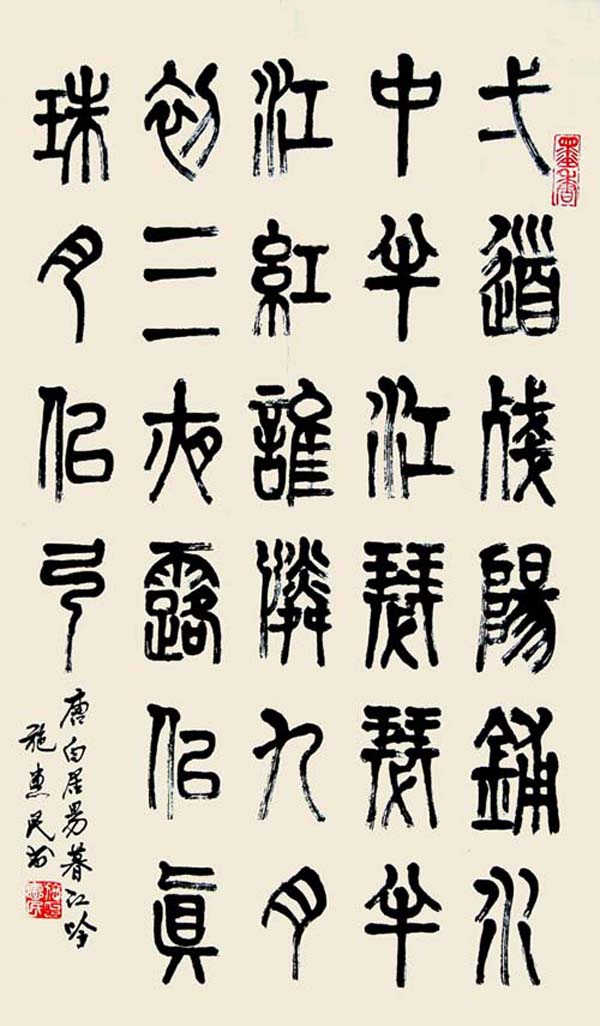 弌道殘陽鋪水
中半江瑟瑟半
江紅誰憐九月
初三夜露似真
珠月似弓
唐白居易暮江吟
施惠民書
墨香